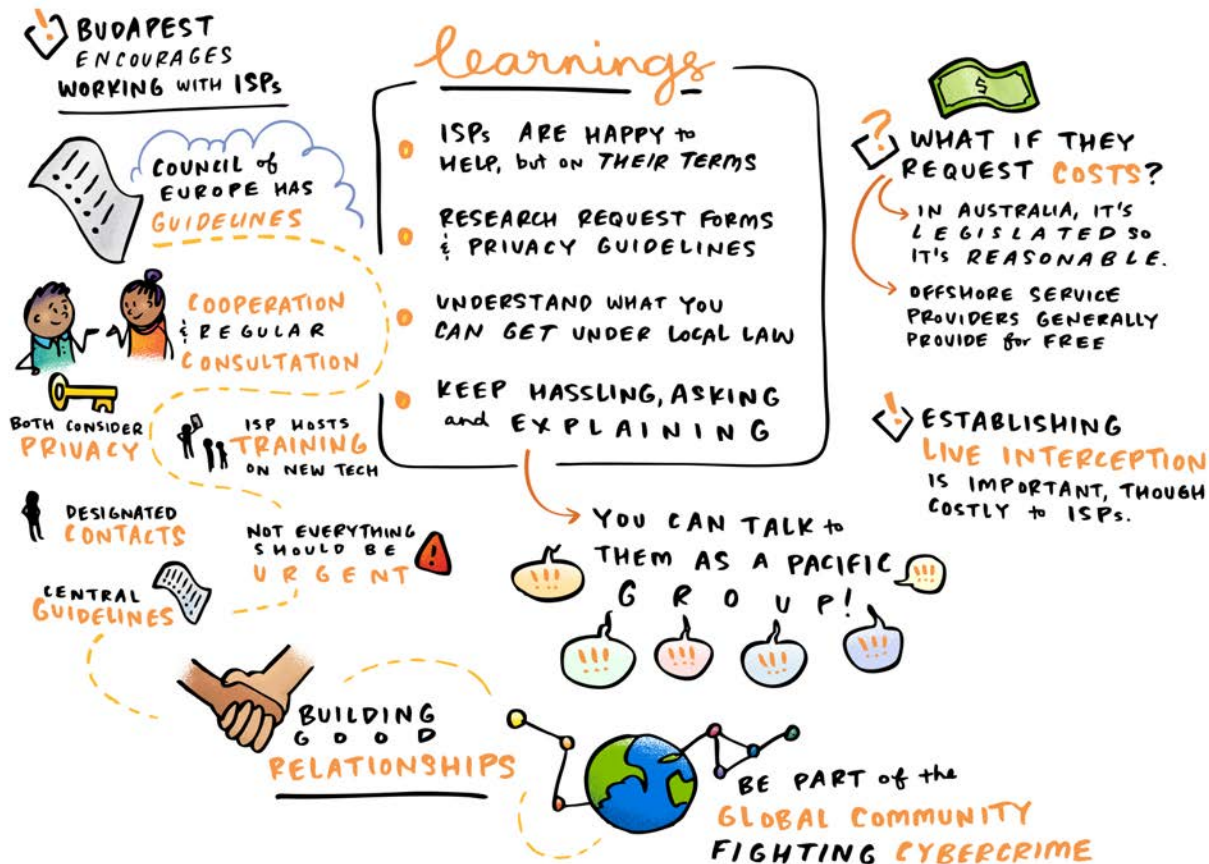 BUDAPEST
ENCOURAGES
WORKING WITH ISPs
COUNCIL of
EUROPE HAS
GUIDELINES
COOPERATION
& REGULAR
CONSULTATION
BOTH CONSIDER
PRIVACY
ISP HOSTS
TRAINING
ON NEW TECH
DESIGNATED
CONTACTS
NOT EVERYTHING
SHOULD BE
URGENT
CENTRAL
GUIDELINES
BUILDING
GOOD
RELATIONSHIPS
learnings
ISPs ARE HAPPY to
HELP, but on THEIR TERMS
RESEARCH REQUEST FORMS
& PRIVACY GUIDELINES
UNDERSTAND WHAT YOU
CAN GET UNDER LOCAL LAW
KEEP HASSLING, ASKING
and EXPLAINING
YOU CAN TALK to
THEM AS A PACIFIC
GROUP!
$
WHAT IF THEY
REQUEST COSTS?
IN AUSTRALIA, IT'S
LEGISLATED SO
IT'S REASONABLE.
OFFSHORE SERVICE
PROVIDERS GENERALLY
PROVIDE for FREE
ESTABLISHING
LIVE INTERCEPTION
IS IMPORTANT, THOUGH
COSTLY to ISPs.
BE PART of the
GLOBAL COMMUNITY
FIGHTING CYBERCRIME